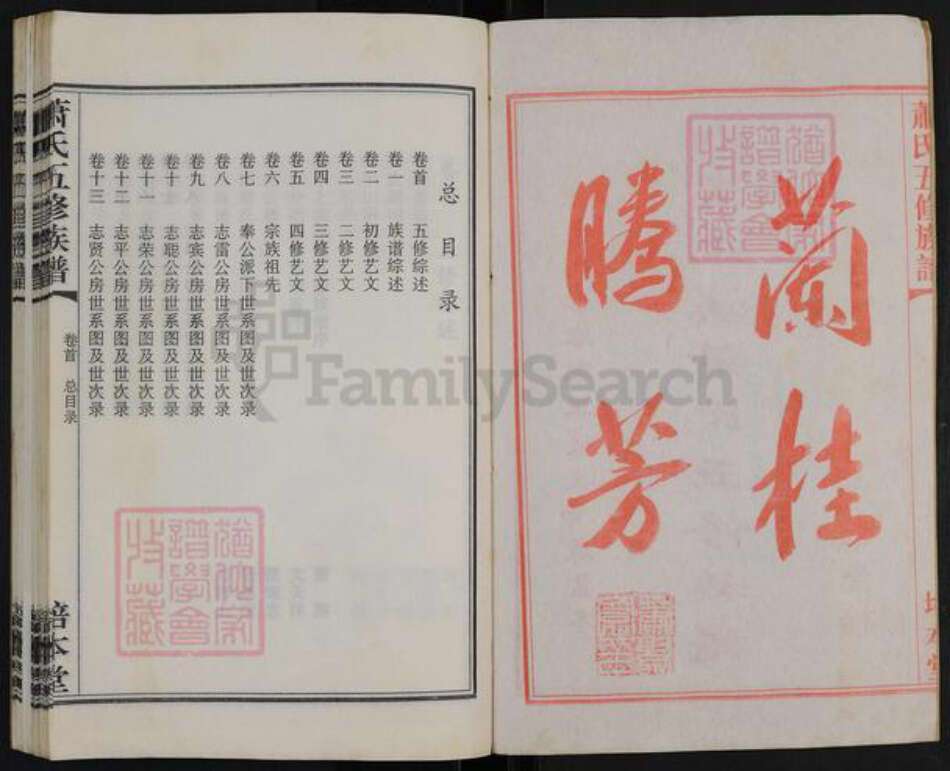 萧氏五修族谱
兰桂
腾芳
总目录
卷首 五修综述
卷一 族谱综述
卷二 初修艺文
卷三 二修艺文
卷四 三修艺文
卷五 四修艺文
卷六 宗族祖先
卷七 奉公派下世系图及世次录
卷八 志雷公房世系图及世次录
卷九 志宾公房世系图及世次录
卷十 志聪公房世系图及世次录
卷十一 志荣公房世系图及世次录
卷十二 志平公房世系图及世次录
卷十三 志贤公房世系图及世次录
萧氏五修族谱
卷首 总目录
培本堂
譜學會
收藏
FamilySearch